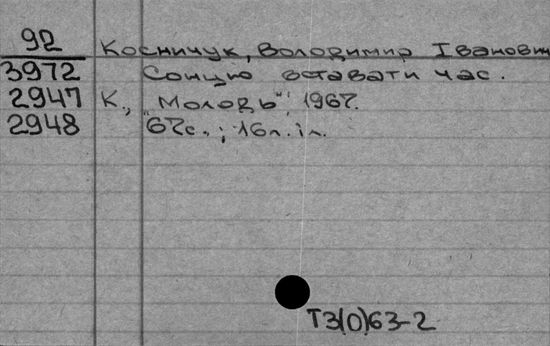 92
Косничук, Володимир Іванович
3972 Сонцю вставати час.
2947 К., "Молодь", 1967.
2948 67с.; 16л.іл.
Т3(0)63-2